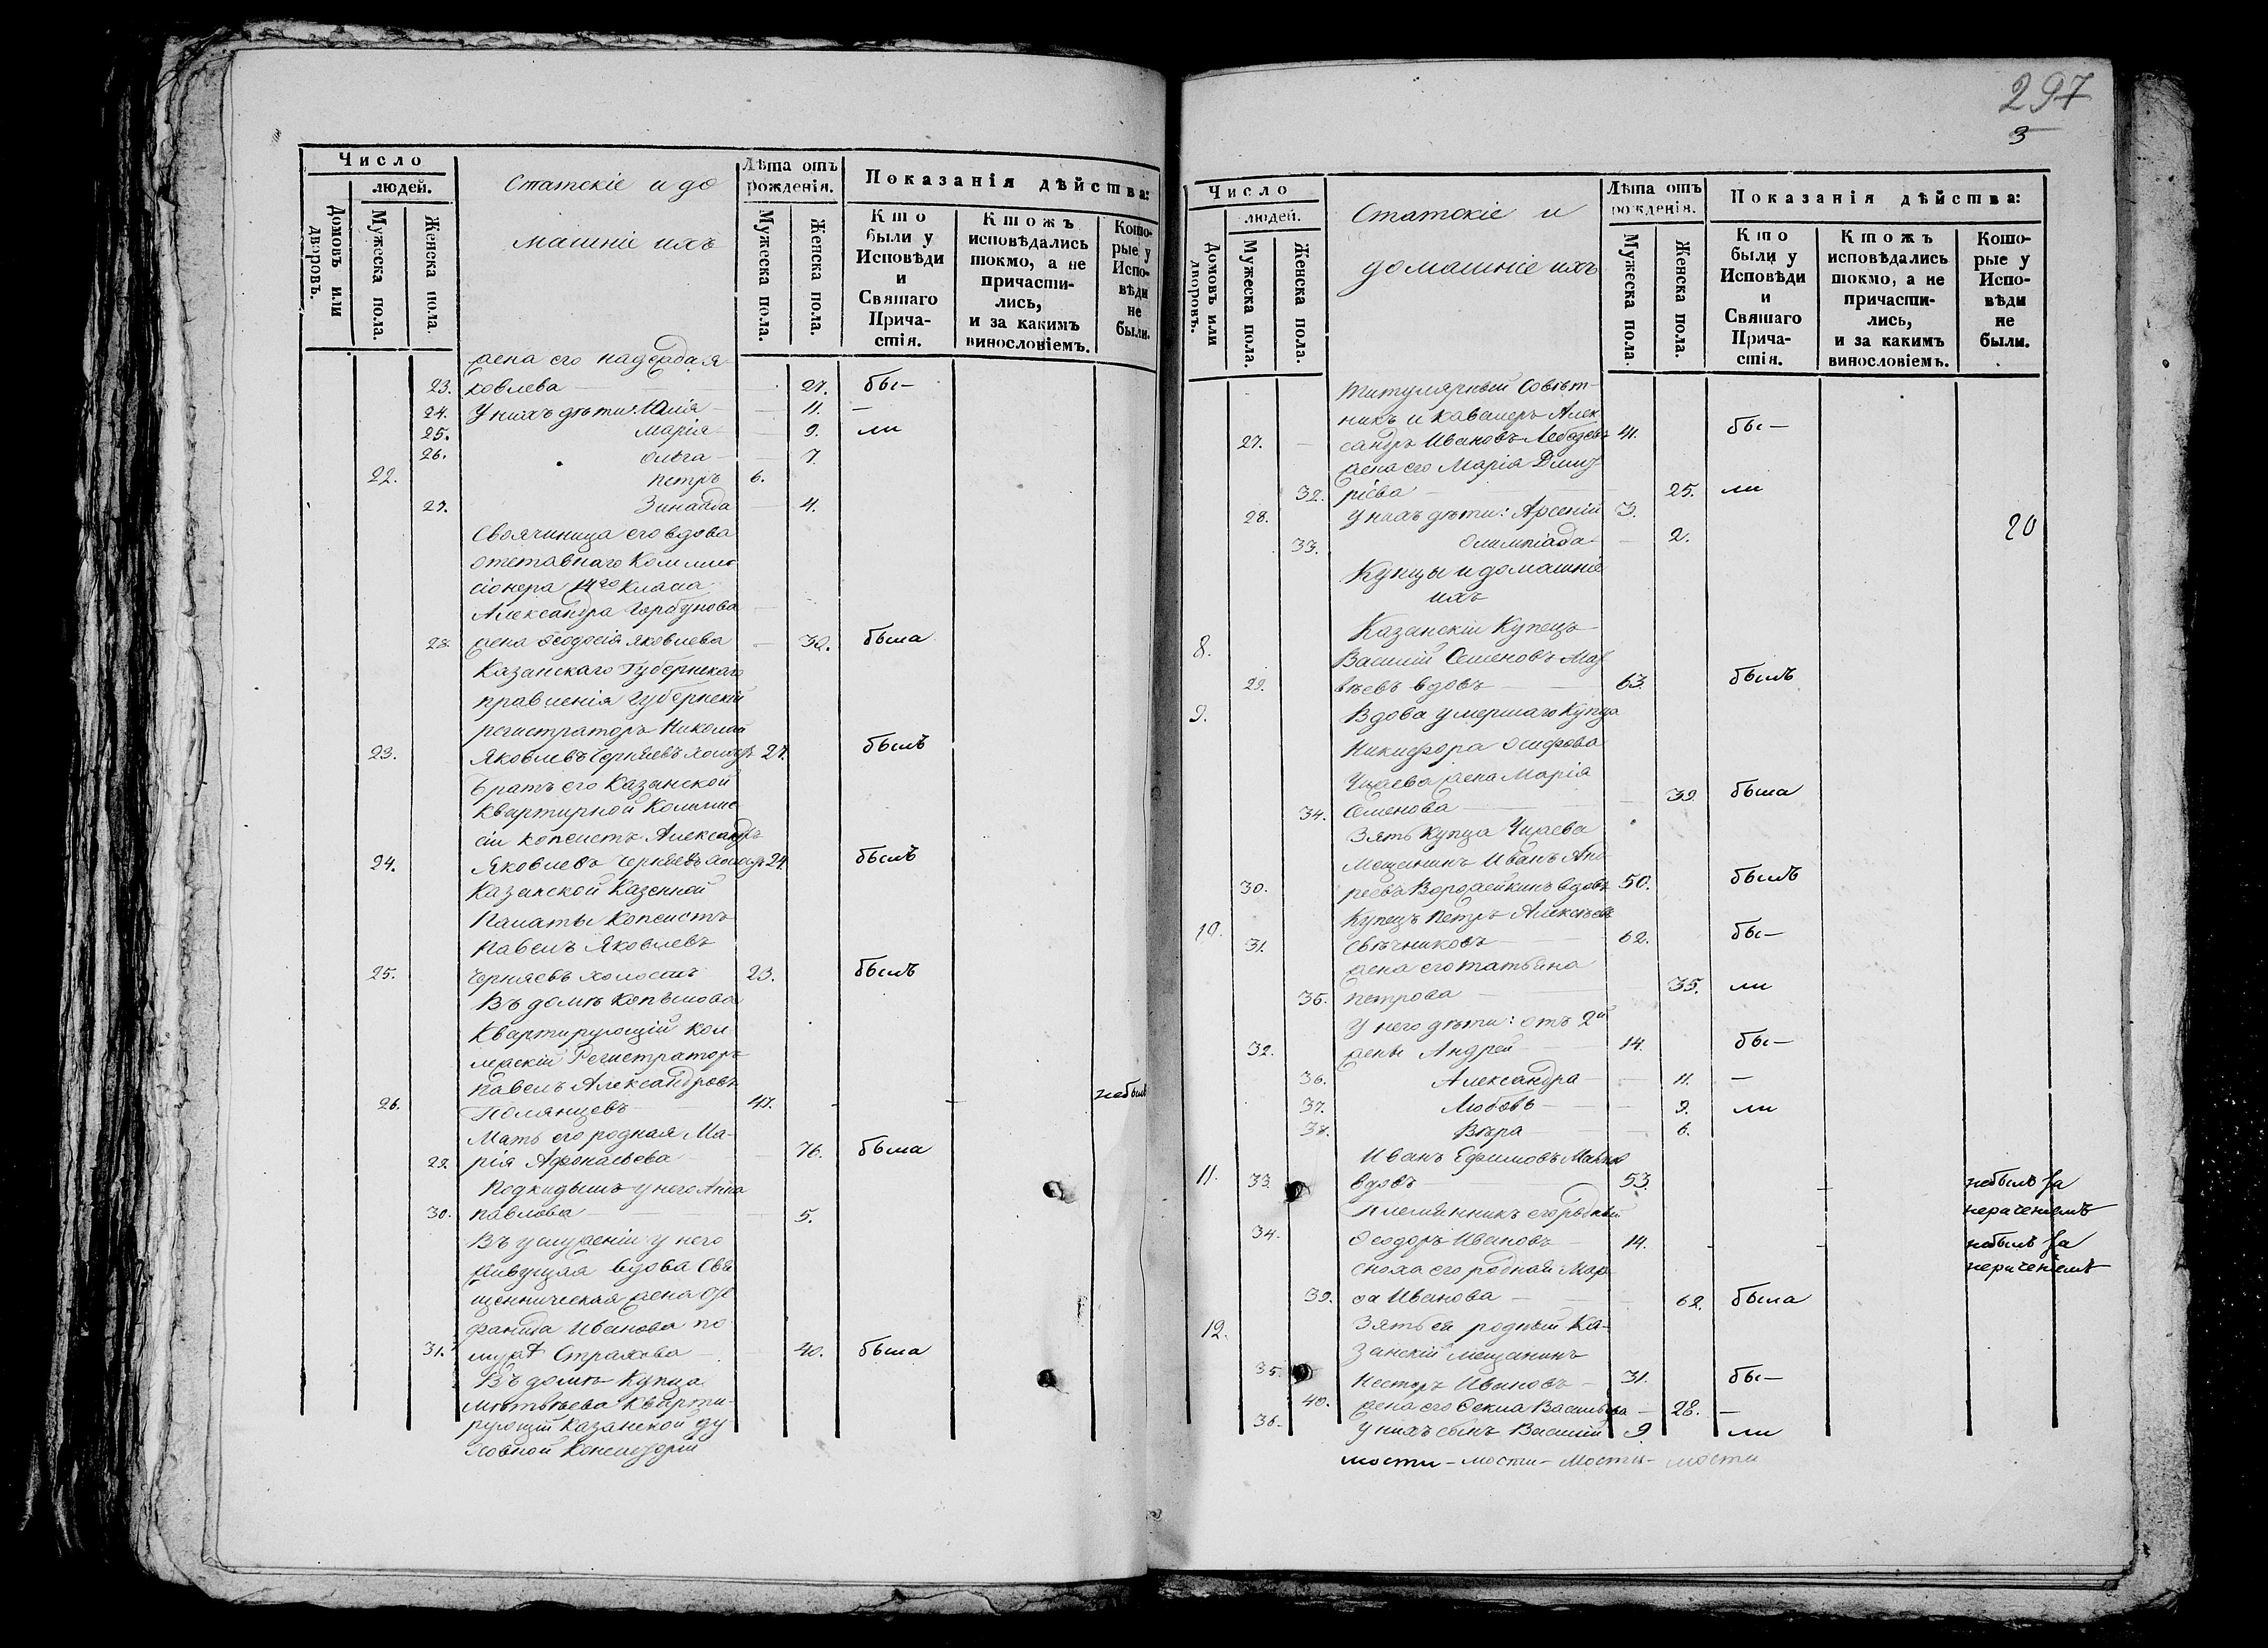 297
3
Число
людей.
Домовъ или дворовъ.
Мужеска пола.
Женска пола.
Статскіе и до
машніе ихъ
Лѣта отъ
рожденія.
Мужеска пола.
Женска пола.
Показанія дѣйства:
Кто
были у
Исповѣди
и
Святаго
Прича-
стія.
Ктожъ
исповѣдались
токмо, а не
причасти-
лись,
и за какимъ
винословіемъ.
Кото-
рые у
Испо-
вѣди
не
были.
жена его
23. ковлева 27. бы-
24. У нихъ дѣти: Юлія 11. -
25. Марія 9. ли
26. Ольга 7.
22. Петръ 6.
27. Зинаида 4.
Своячиница его вдова
отставнаго Коммис
сіонера 14го Класа
Александра Горбунова
28. жена Ѳеодосія Яковлева 30. была
Казанскаго Губернскаго
правленія Губернскій
регистраторъ Николай
23. Яковлевъ Черняевъ холостъ 27. былъ
братъ его Казанской
Квартирной Коммис
сіи копеистъ Александръ
24. Яковлевъ Черняевъ холостъ 24. былъ
Казанской Казенной
Палаты Копеистъ
Павелъ Яковлевъ
25. Черняевъ холостъ 23. былъ
Въ домѣ Копылова
Квартирующій Кол
лежскій Регистраторъ
Павелъ Александровъ
26. Полянцевъ 47. небылъ
Мать его родная Ма-
29. рія Афонасьева 76. была
Подкидышъ у него Анна
30. Павлова 5.
Въ услуженіи у него
живущая вдова Свя
щенническая жена
фанида Иванова по
31. мужѣ Страхова 40. была
Въ домѣ Купца
Матвѣева Кварти-
рующій Казанской ду
ховной Консисторіи
Число
людей.
Домовъ или дворовъ.
Мужеска пола.
Женска пола.
Статскіе и
домашніе ихъ
Лѣта отъ
рожденія.
Мужеска пола.
Женска пола.
Показанія дѣйства:
Кто
были у
Исповѣди
и
Святаго
Прича-
стія.
Ктожъ
исповѣдались
токмо, а не
причасти-
лись,
и за какимъ
винословіемъ.
Кото-
рые у
Испо-
вѣди
не
были.
Титулярный Совѣт-
никъ и Кавалеръ Алек
27. сандръ Ивановъ Лебедевъ 41. бы-
жена его Марія Дмит
32. ріева 25. ли
28. У нихъ дѣти: Арсеній 3.
33. Олимпіада 2. 20
Купцы и домашніе
ихъ
8. Казанскій Купецъ
Василій Семеновъ Мат
29. вѣевъ вдовъ 63. былъ
9. Вдова умершаго Купца
Никифора Осифова
жена Марія
34. Семенова 39. была
Зять Купца
Мещанинъ Иванъ Анд
30. реевъ вдовъ 50. былъ
10. Купецъ Петръ Алексѣевъ
31. Свѣчниковъ 62. бы-
жена его Татьяна
35. Петрова 35. ли
У него дѣти: отъ 2й
32. жены Андрей 14. бы-
36. Александра 11. -
37. Любовь 9. ли
38. Вѣра 6.
11. Иванъ Ефимовъ
33. вдовъ 53. небылъ за
нераченіемъ
Племянникъ его родный
34. Ѳеодоръ Ивановъ 14. небылъ за
нераченіемъ
Сноха его родная Мар
39. ѳа Иванова 62. была
12. Зять ея родный Ка-
занскій мещанинъ
35. Несторъ Ивановъ 31. бы-
40. жена его Ѳекла Васильева 28. -
36. У нихъ сынъ Василій 9 ли
мости - мости - мости - мости